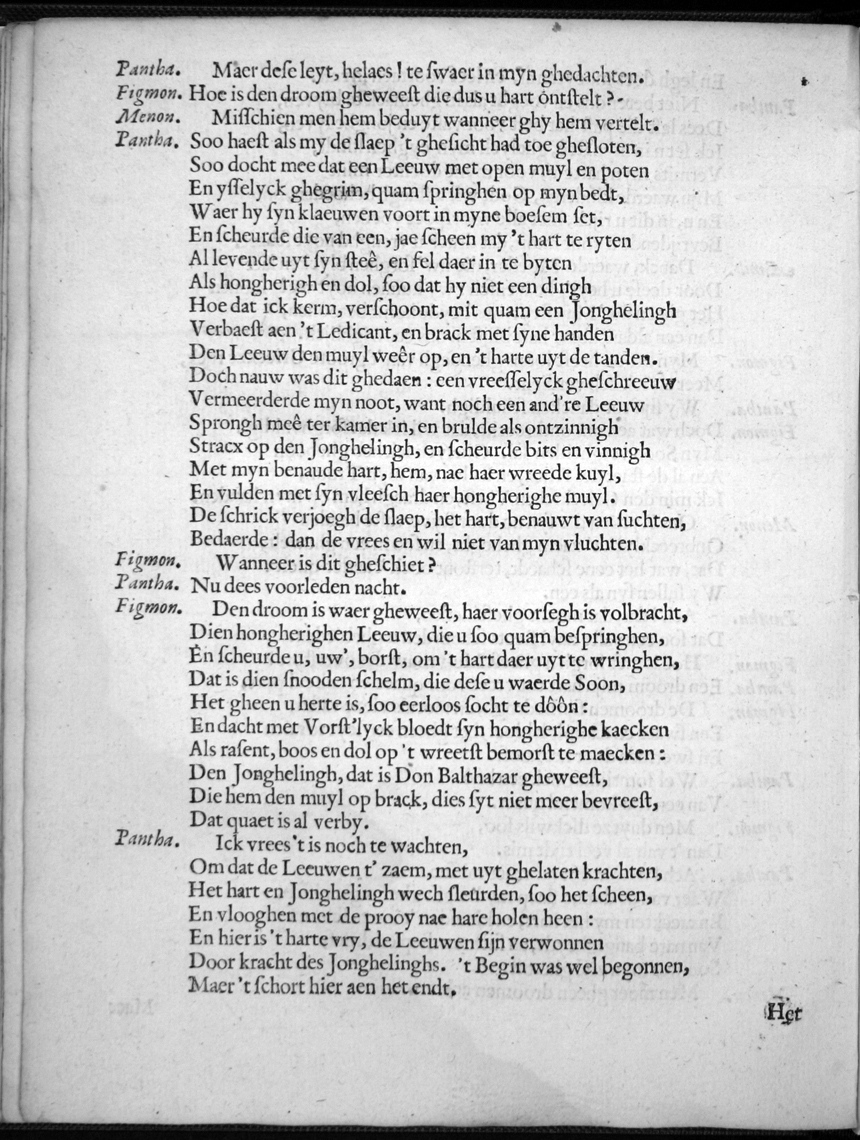 Pantha. Maer deſe leyt, helaes ! te ſwaer in myn ghedachten.
Figmon. Hoe is den droom gheweeſt die dus u hart ontſtelt ?
Menon. Miſſchien men hem beduyt wanneer ghy hem vertelt.
Pantha. Soo haeſt als my de ſlaep 't gheſicht had toe gheſloten,
Soo docht mee dat een Leeuw met open muyl en poten
En yſſelyck ghegrim, quam ſpringhen op myn bedt,
Waer hy ſyn klaeuwen voort in myne boeſem ſet,
En ſcheurde die van een, jae ſcheen my 't hart te ryten
Al levende uyt ſyn ſteê, en fel daer in te byten
Als hongherigh en dol, ſoo dat hy niet een dingh
Hoe dat ick kerm, verſchoont, mit quam een Jonghelingh
Verbaeſt aen 't Ledicant, en brack met ſyne handen
Den Leeuw den muyl weêr op, en 't harte uyt de tanden.
Doch nauw was dit ghedaen : een vreeſſelyck gheſchreeuw
Vermeerderde myn noot, want noch een and're Leeuw
Sprongh meê ter kamer in, en brulde als ontzinnigh
Stracx op den Jonghelingh, en ſcheurde bits en vinnigh
Met myn benaude hart, hem, nae haer wreede kuyl,
En vulden met ſyn vleeſch haer hongherighe muyl.
De ſchrick verjoegh de ſlaep, het hart, benauwt van ſuchten,
Bedaerde : dan de vrees en wil niet van myn vluchten.
Figmon. Wanneer is dit gheſchiet ?
Pantha. Nu dees voorleden nacht.
Figmon. Den droom is waer gheweeſt, haer voorſegh is volbracht,
Dien hongherighen Leeuw, die u ſoo quam beſpringhen,
En ſcheurde u, uw', borſt, om 't hart daer uyt te wringhen,
Dat is dien ſnooden ſchelm, die deſe u waerde Soon,
Het gheen u herte is, ſoo eerloos ſocht te dôôn :
En dacht met Vorſt'lyck bloedt ſyn hongherighe kaecken
Als raſent, boos en dol op 't wreetſt bemorſt te maecken :
Den Jonghelingh, dat is Don Balthazar gheweeſt,
Die hem den muyl op brack, dies ſyt niet meer bevreeſt,
Dat quaet is al verby.
Pantha. Ick vrees 't is noch te wachten,
Om dat de Leeuwen t' zaem, met uyt ghelaten krachten,
Het hart en Jonghelingh wech ſleurden, ſoo het ſcheen,
En vlooghen met de prooy nae hare holen heen :
En hier is 't harte vry, de Leeuwen ſijn verwonnen
Door kracht des Jonghelinghs. 't Begin was wel begonnen,
Maer 't ſchort hier aen het endt.
Het